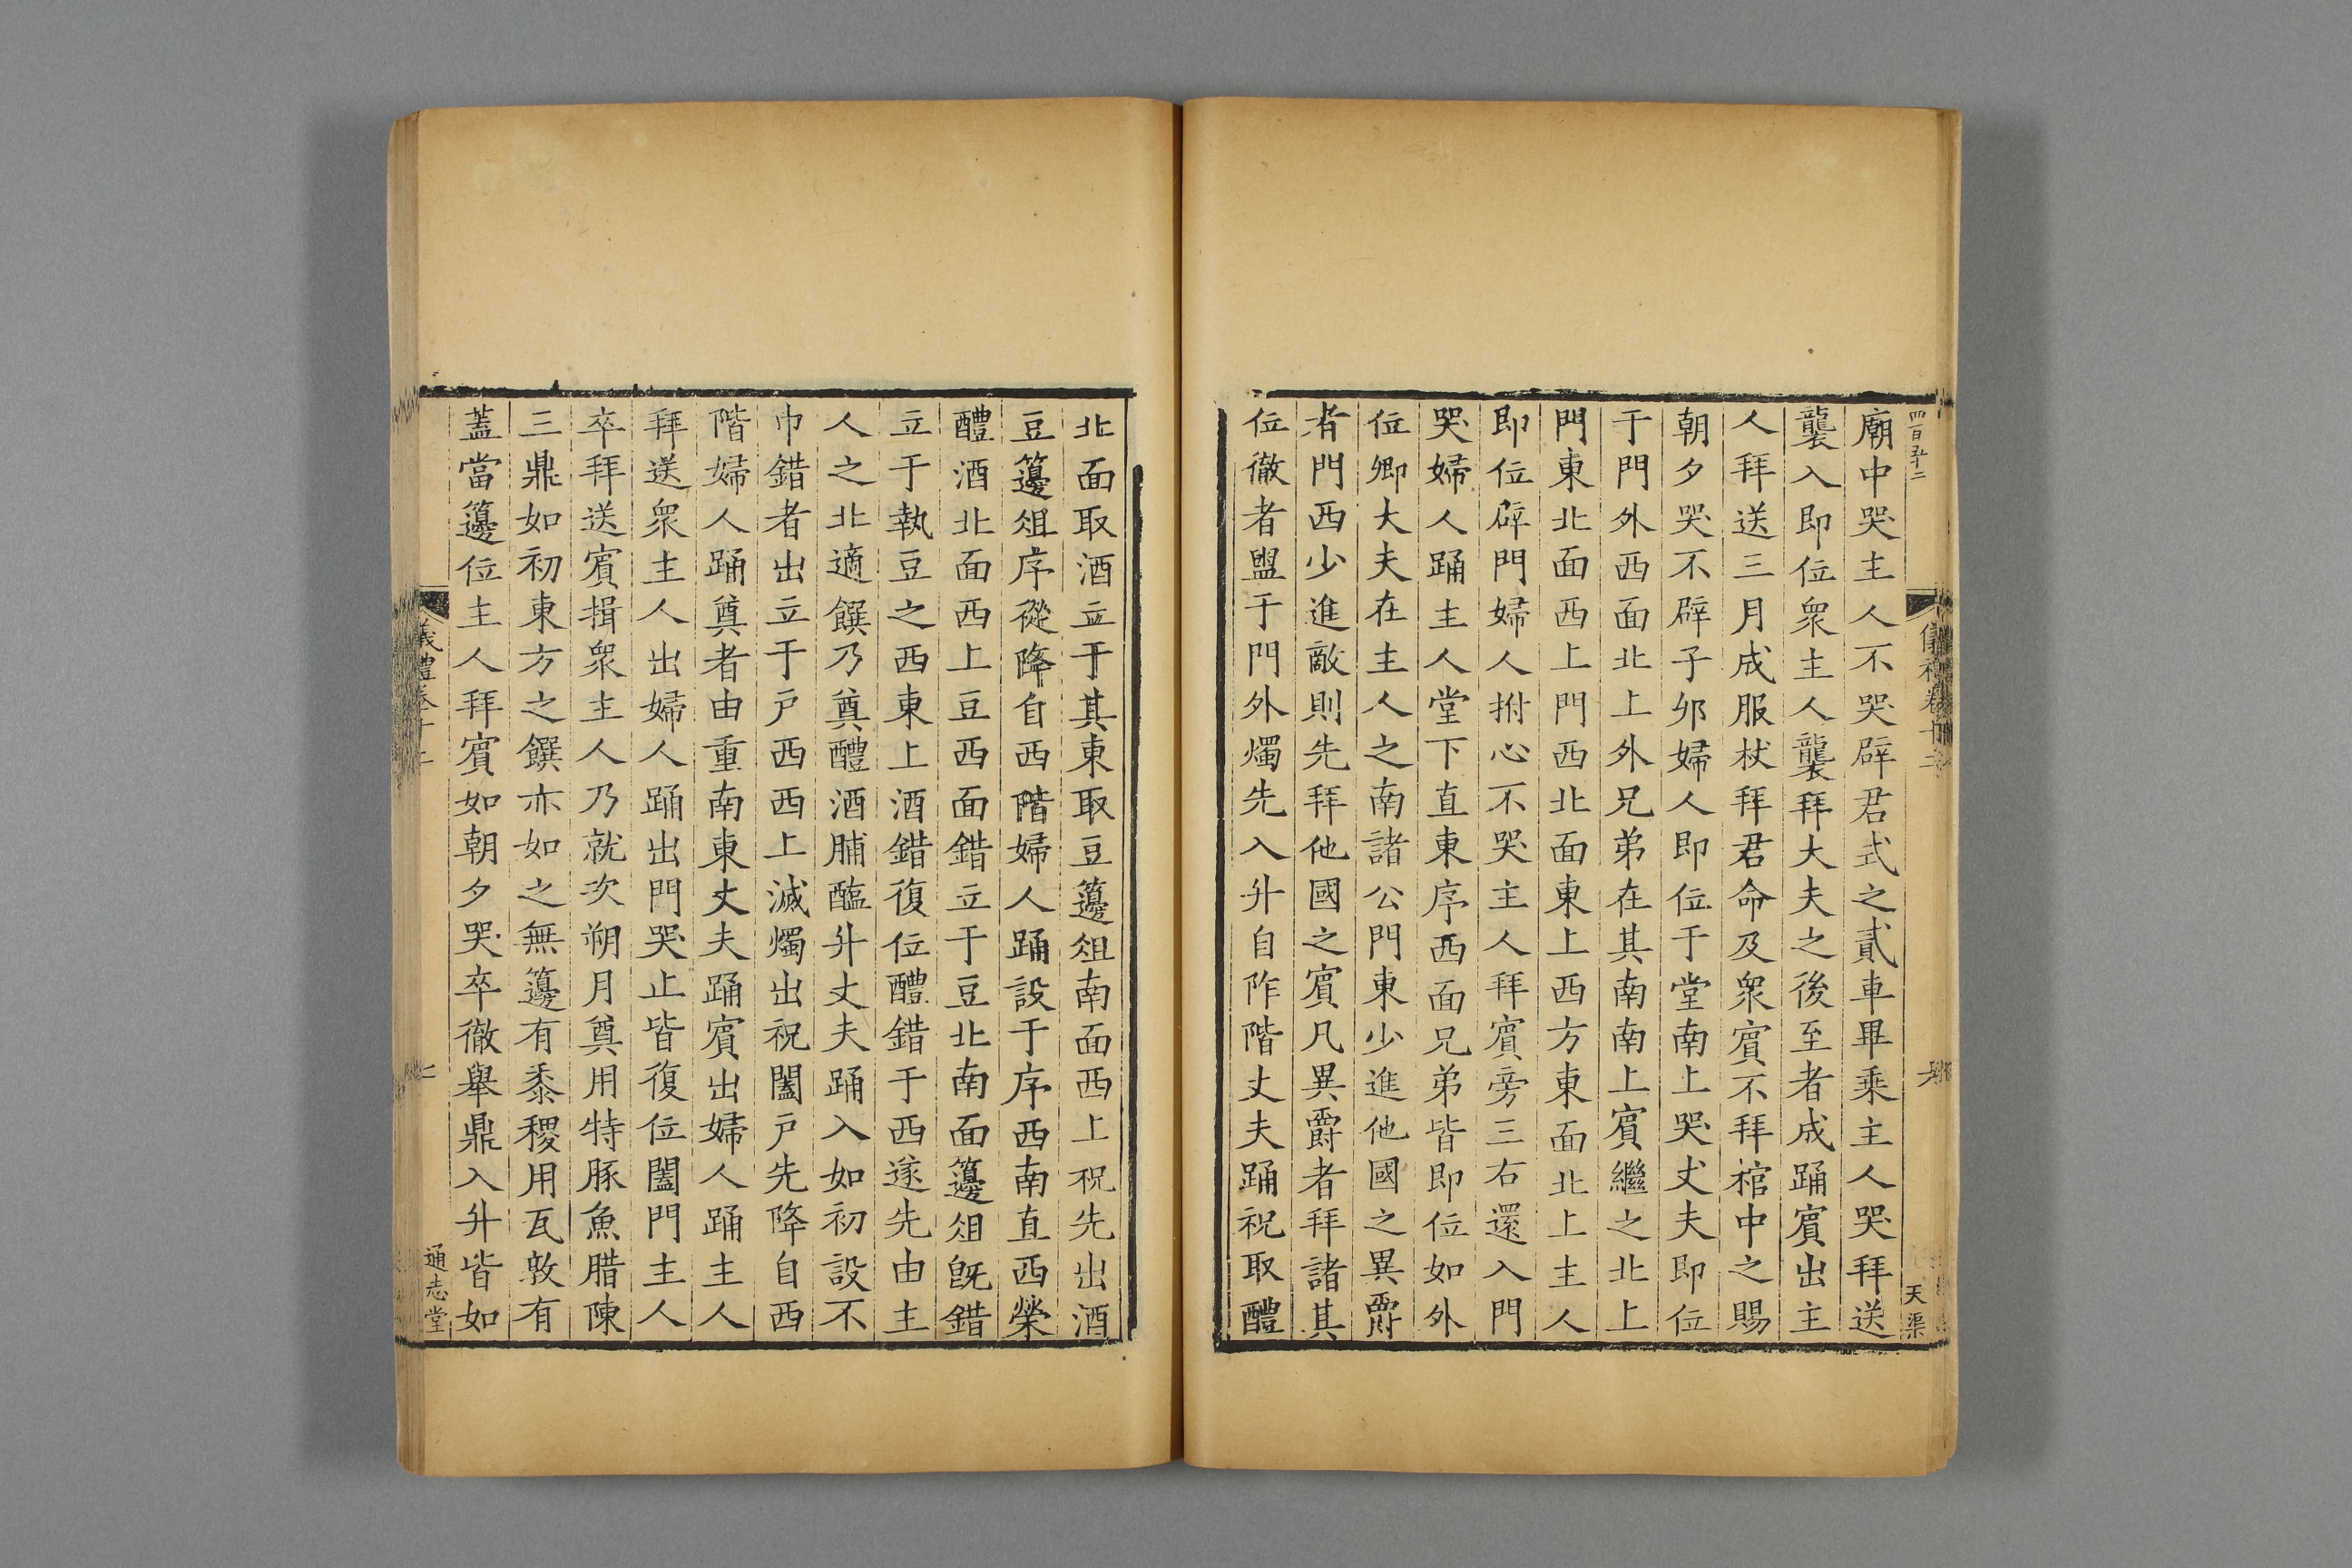 四百五十二
廟中哭主人不哭辟君式之貳車畢乘主人哭拜送
襲入即位衆主人襲拜大夫之後至者成踊賓出主
人拜送三月成服杖拜君命及衆賓不拜棺中之賜
朝夕哭不辟子夘婦人即位于堂南上哭丈夫即位
于門外西面北上外兄弟在其南南上賓繼之北上
門東北面西上門西北面東上西方東面北上主人
即位辟門婦人拊心不哭主人拜賓旁三右還入門
哭婦人踊主人堂下直東序西面兄弟皆即位如外
位卿大夫在主人之南諸公門東少進他國之異爵
者門西少進敵則先拜他國之賓凡異爵者拜諸其
位徹者盥于門外燭先入升自阼階丈夫踊祝取醴
天渠
北面取酒立于其東取豆籩俎南面西上祝先出酒
豆籩俎序從降自西階婦人踊設于序西南直西榮
醴酒北面西上豆西面錯立于豆北南面籩俎旣錯
立于執豆之西東上酒錯復位醴錯于西遂先由主
人之北適饌乃奠醴酒脯醢升丈夫踊入如初設不
巾錯者出立于戶西西上滅燭出祝闔戶先降自西
階婦人踊奠者由重南東丈夫踊賓出婦人踊主人
拜送衆主人出婦人踊出門哭止皆復位闔門主人
卒拜送賓揖衆主人乃就次朔月奠用特豚魚腊陳
三鼎如初東方之饌亦如之無籩有黍稷用瓦敦有
蓋當籩位主人拜賓如朝夕哭卒徹舉鼎入升皆如
通志堂